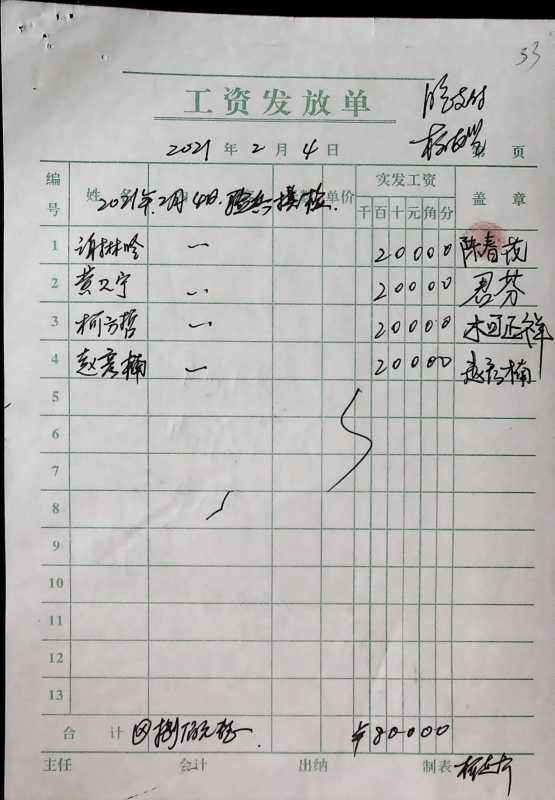 33
工资发放单
2021 年 2 月 4 日 页
编号 姓名 单价 实发工资 盖章
千 百 十 元 角 分
2021年.2月4日.
1 谢琳吟 一 20000 陈春茂
2 黄 宁 20000 君芬
3 柯方哲 一 20000 木可正祥
4 赵彦楠 一 20000 赵彦楠
5
6
7
8
9
10
11
12
13
合计 捌佰元整. ¥80000
主任 会计 出纳 制表